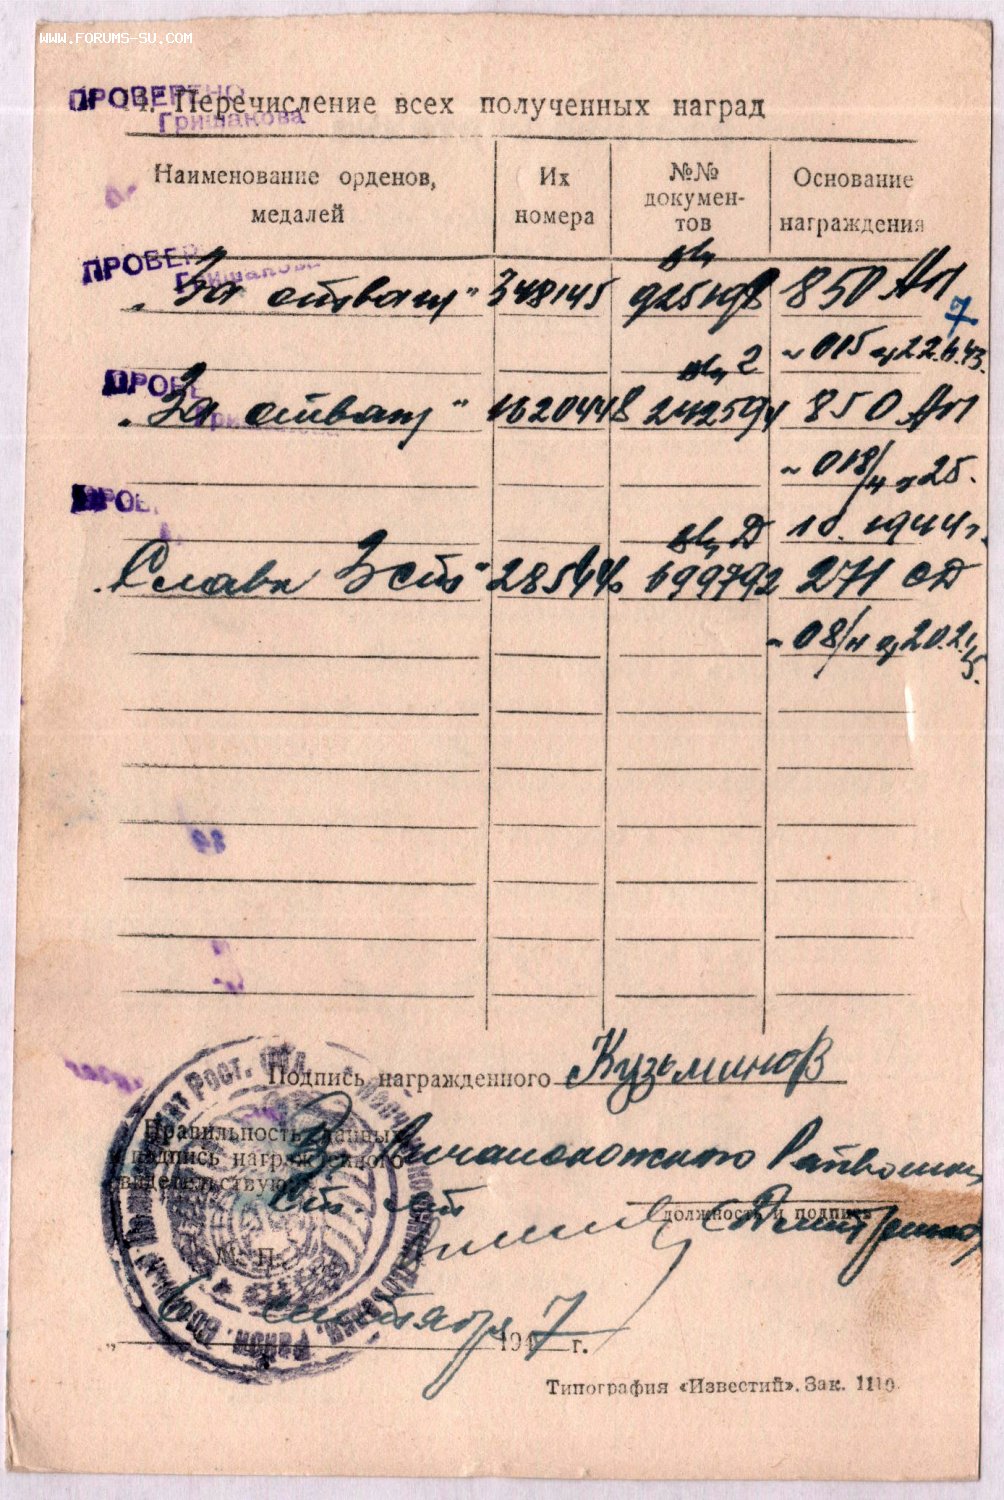 WWW.FORUMS-SU.COM
ПРОВЕРЕНО
Гришакова
4. Перечисление всех полученных наград
Наименование орденов, медалей
Их номера
№№ докумен-тов
Основание награждения
ПРОВЕР
Гришакова
„За отвагу" 348145 925198 850 АП
7
015 22.6.43.
ПРОВЕ
2
„За отвагу" 1620448 242594 850 АП
018/н 25.
ПРОВ
Д 10. 1944г.
„Слава 3 ст" 285646 699792 271 СД
08/н 20.2.45.
Подпись награжденного Кузьминов
Правильность данных
и подпись награжденного
свидетельствую
Райвоенком
должность и подпись
М. П.
сентября 1947 г.
Типография «Известий». Зак. 1110